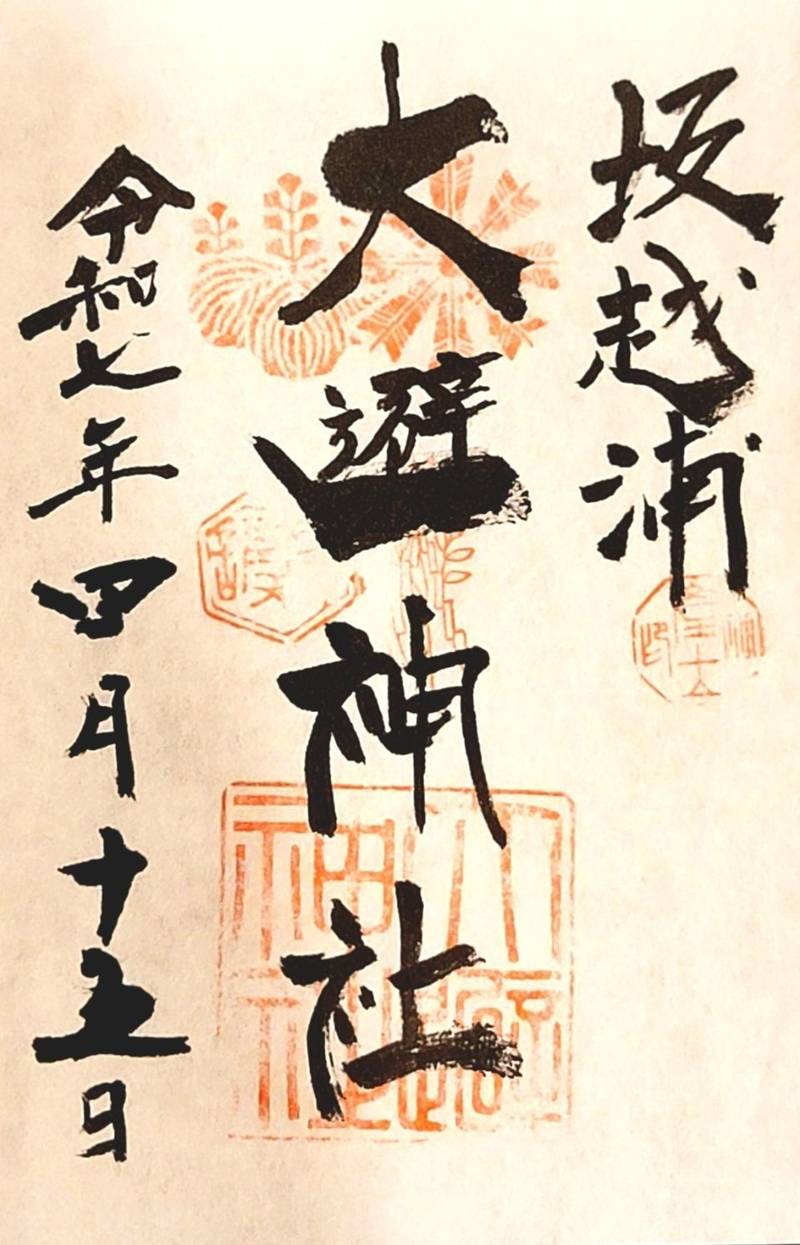 坂越浦
大避神社
令和七年四月十五日
大避神社